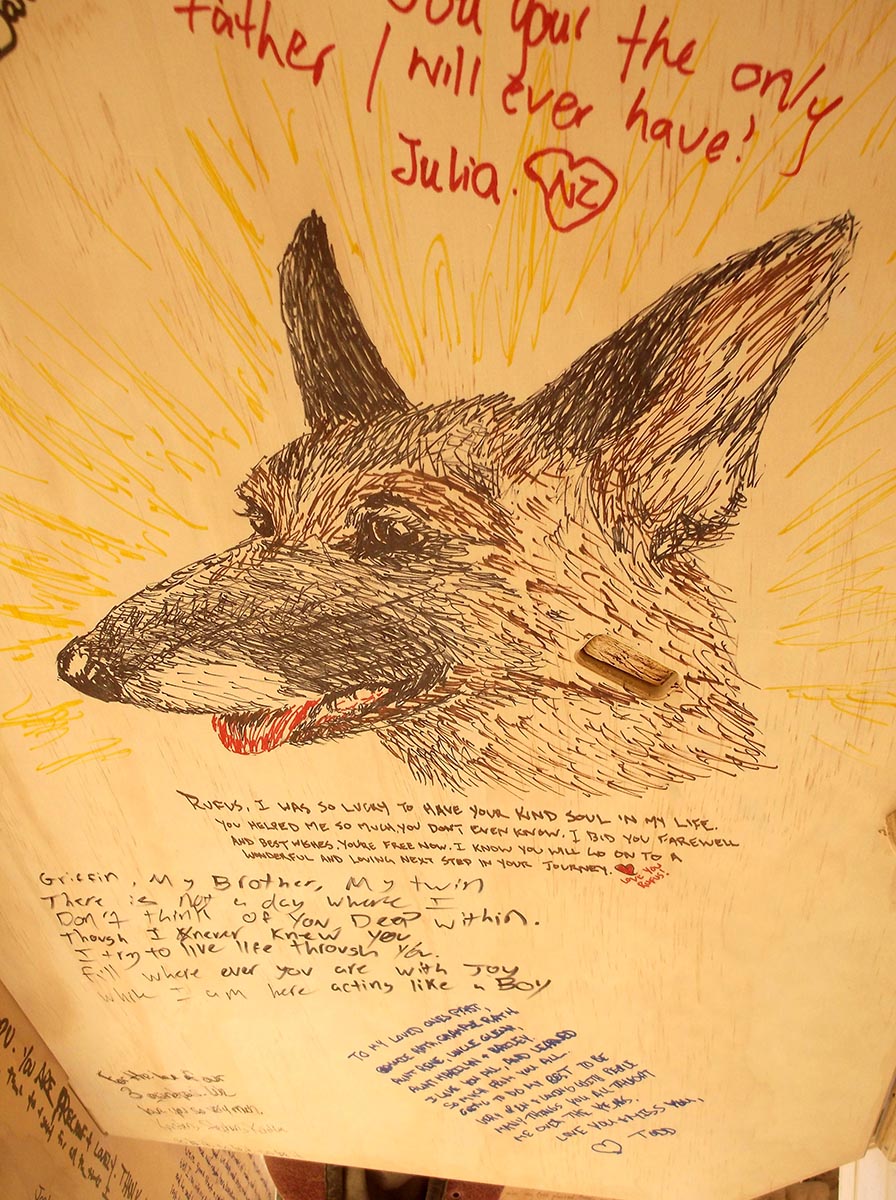 you your the only
father I will ever have!
Julia. NZ
RUFUS, I WAS SO LUCKY TO HAVE YOUR KIND SOUL IN MY LIFE.
YOU HELPED ME SO MUCH, YOU DON'T EVEN KNOW. I BID YOU FAREWELL
AND BEST WISHES. YOU'RE FREE NOW. I KNOW YOU WILL GO ON TO A
WONDERFUL AND LOVING NEXT STEP IN YOUR JOURNEY.
LOVE YOU
RUFUS!
Griffin, My Brother, My twin
There is not a day where I
Don't think of You Deep within.
Though I never knew you
I try to live life through you.
Fill where ever you are with Joy
While I am here acting like a Boy
TO MY LOVED ONES PAST,
AUNT RENE, UNCLE GLENN,
AUNT MARILYN +
I LOVE YOU ALL, AND LEARNED
SO MUCH FROM YOU ALL.
GOING TO DO MY BEST TO BE
OPEN & LOVING WITH PEOPLE
MANY THINGS YOU ALL TAUGHT
ME OVER THE YEARS.
LOVE YOU & MISS YOU,
TODD
For the love of our
3
love you so very much,
YOU ARE PRECIOUS & LOVELY. THANK